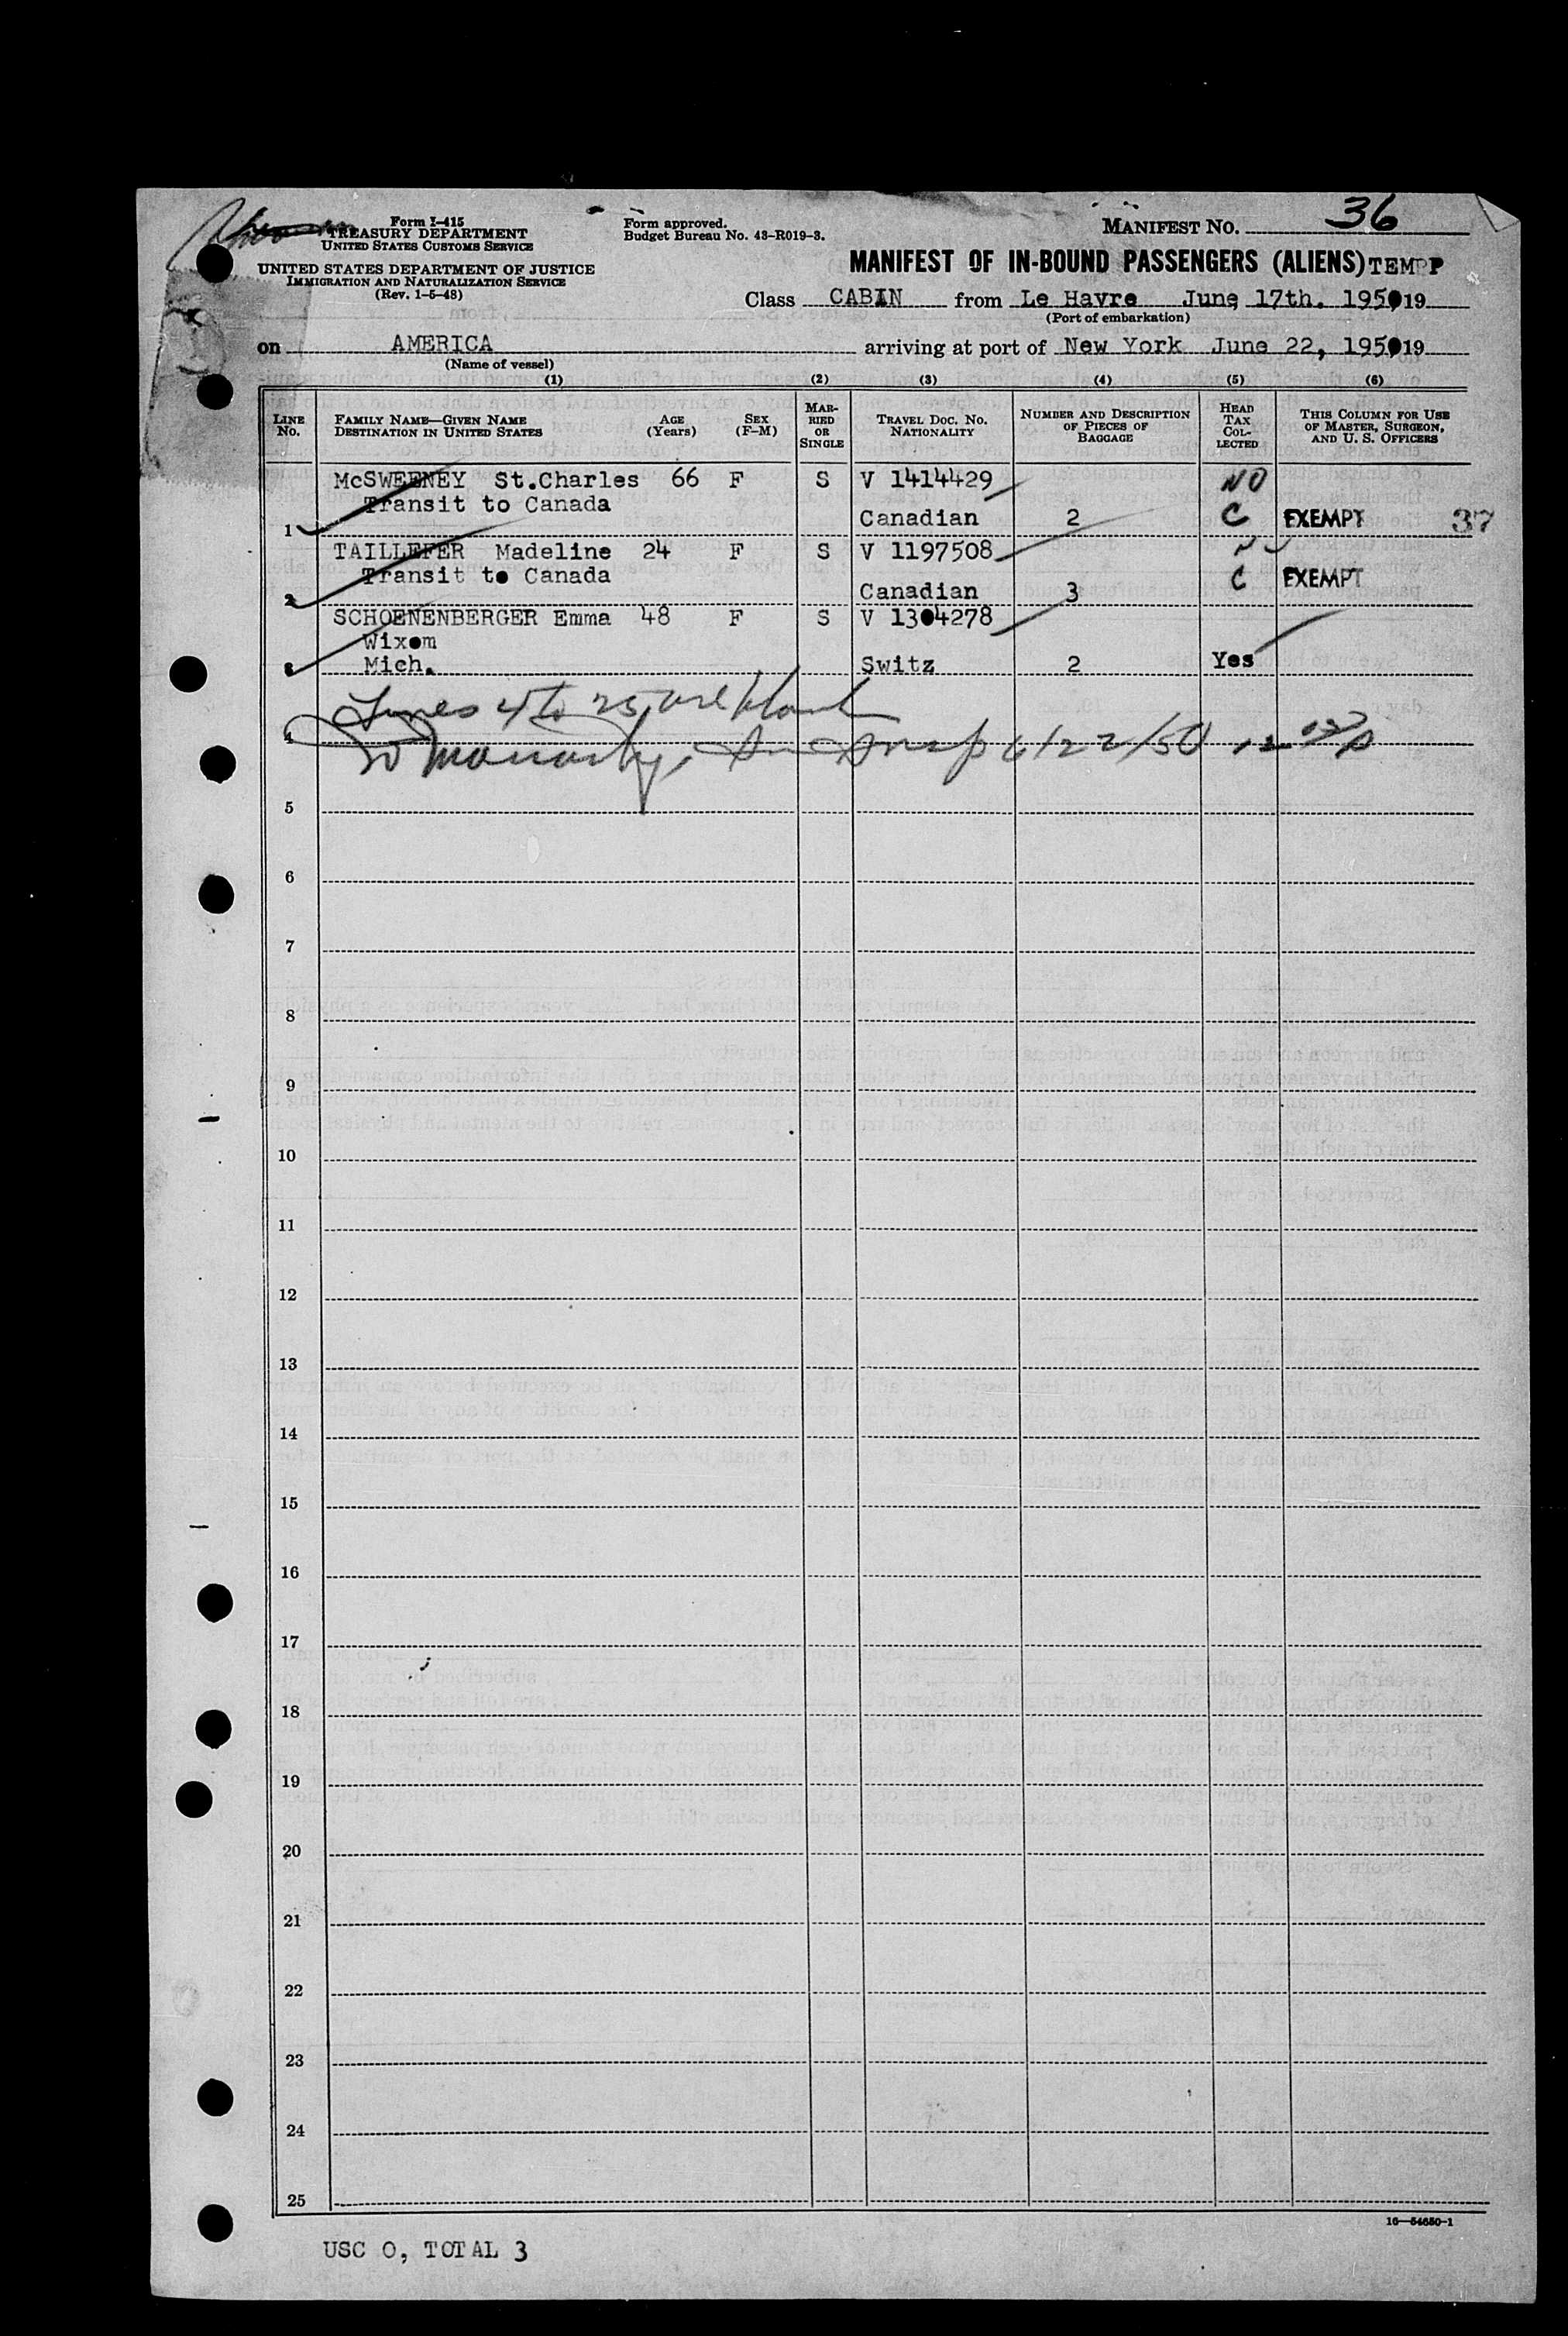 Form I-415
TREASURY DEPARTMENT
UNITED STATES CUSTOMS SERVICE
UNITED STATES DEPARTMENT OF JUSTICE
IMMIGRATION AND NATURALIZATION SERVICE
(Rev. 1-5-48)
Form approved.
Budget Bureau No. 43-R019-3.
MANIFEST NO. 36
MANIFEST OF IN-BOUND PASSENGERS (ALIENS) TEMP P
Class CABIN from Le Havre June 17th. 1950, 19
(Port of embarkation)
on AMERICA arriving at port of New York June 22, 1950, 19
(Name of vessel)
(1) (2) (3) (4) (5) (6)
LINE NO. FAMILY NAME—GIVEN NAME DESTINATION IN UNITED STATES AGE (Years) SEX (F-M) MARRIED OR SINGLE TRAVEL DOC. NO. NATIONALITY NUMBER AND DESCRIPTION OF PIECES OF BAGGAGE HEAD TAX COLLECTED THIS COLUMN FOR USE OF MASTER, SURGEON, AND U. S. OFFICERS
McSWEENEY St.Charles 66 F S V 1414429 NO
Transit to Canada
1 Canadian 2 C EXEMPT 37
TAILLEFER Madeline 24 F S V 1197508
Transit to Canada C EXEMPT
2 Canadian 3
SCHOENENBERGER Emma 48 F S V 1304278
Wixom
3 Mich. Switz 2 Yes
Lines 4 to 25 are blank
4 6/22/50
5
6
7
8
9
10
11
12
13
14
15
16
17
18
19
20
21
22
23
24
25
16—54650-1
USC 0, TOTAL 3